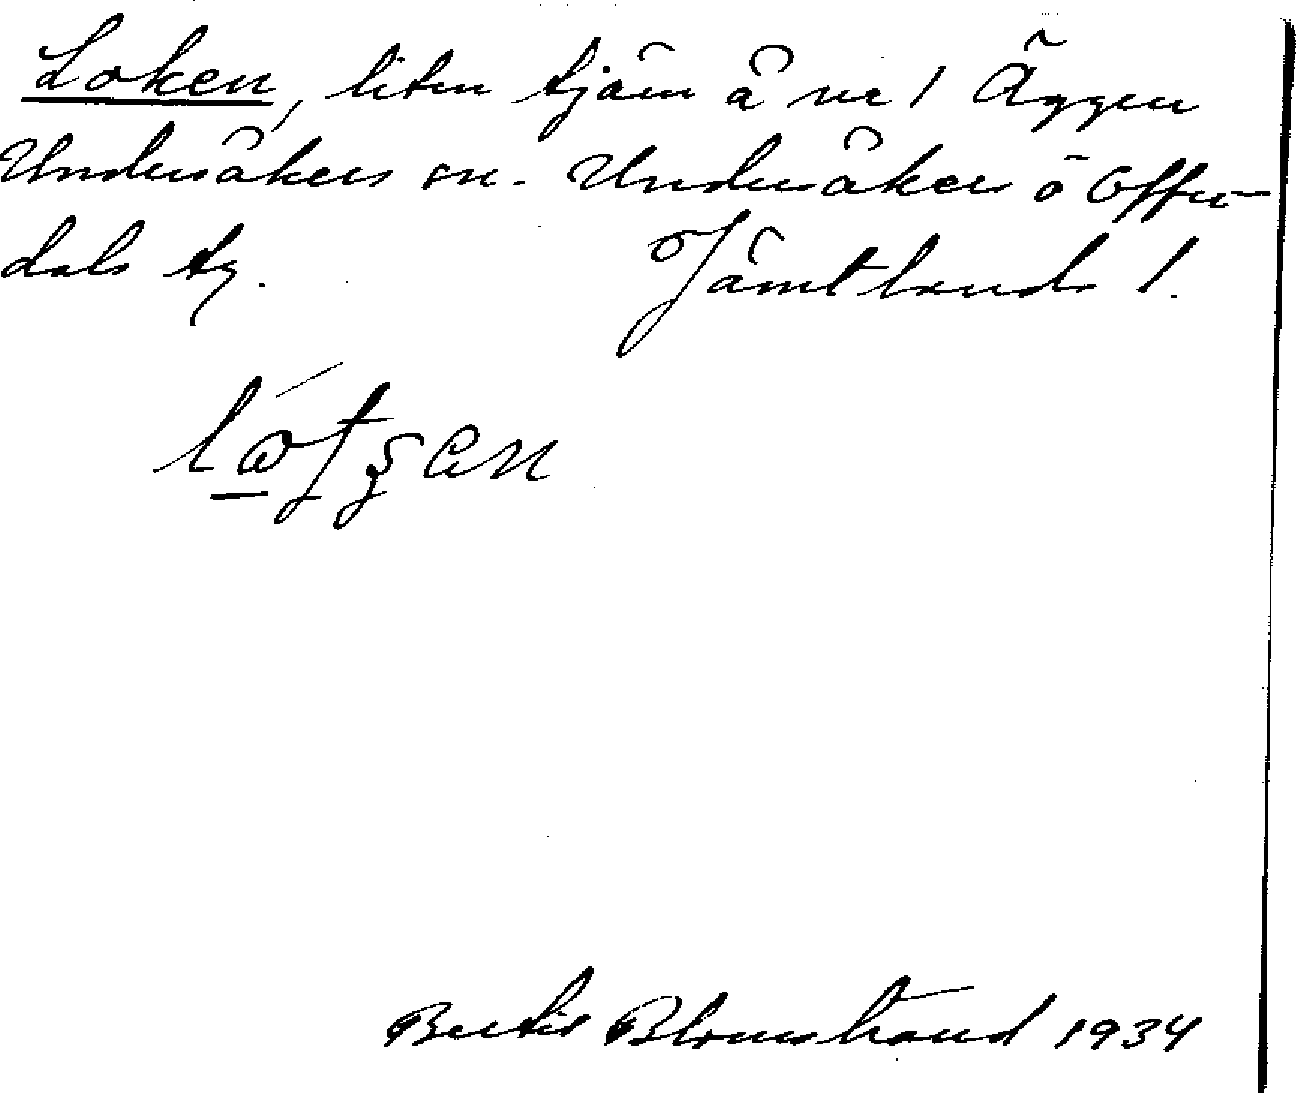 Loken, liten tjärn å nr 1 Äggen
Undersåkers sn. Undersåkers o Offer-
dals tg. Jämtlands l.
Bertil Blomstrand 1934